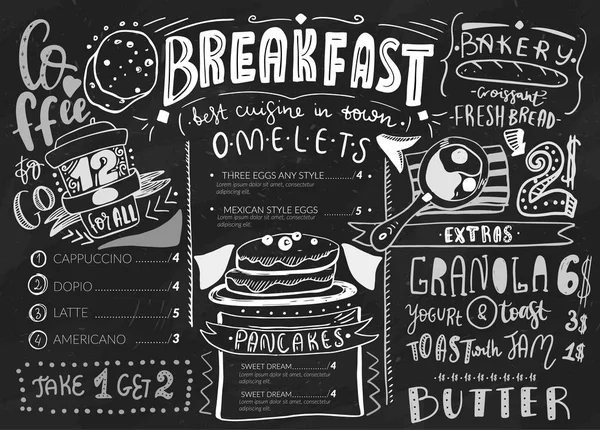 Coffee
to
GO
12
for ALL
1 CAPPUCCINO 4
2 DOPIO 4
3 LATTE 5
4 AMERICANO 3
TAKE 1 GET 2
BREAKFAST
best cuisine in town
O·M·E·L·E·T·S
• THREE EGGS ANY STYLE 4 •
Lorem ipsum dolor sit amet, consectetur
adipiscing elit.
• MEXICAN STYLE EGGS 5 •
Lorem ipsum dolor sit amet, consectetur
adipiscing elit.
PANCAKES
SWEET DREAM 4
Lorem ipsum dolor sit amet, consectetur
adipiscing elit.
SWEET DREAM 4
Lorem ipsum dolor sit amet, consectetur
adipiscing elit.
BAKERY
-Croissant-
-FRESH BREAD-
2$
EXTRAS
GRANOLA 6$
YOGURT & toast 3$
TOAST with JAM 1$
BUTTER